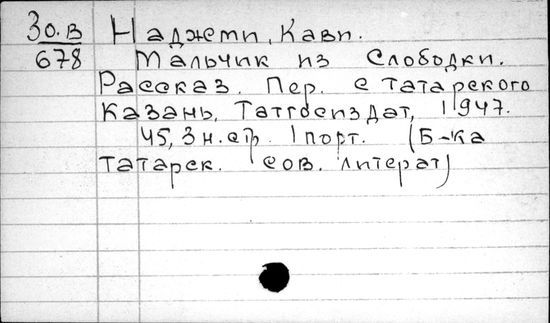 30.В Наджеми, Кави.
678 Мальчик из Слободки.
Рассказ. Пер. с татарского
Казань, Татгосиздат, 1947.
45, 3 н.стр. 1 порт. (Б-ка
татарск. сов. литерат)